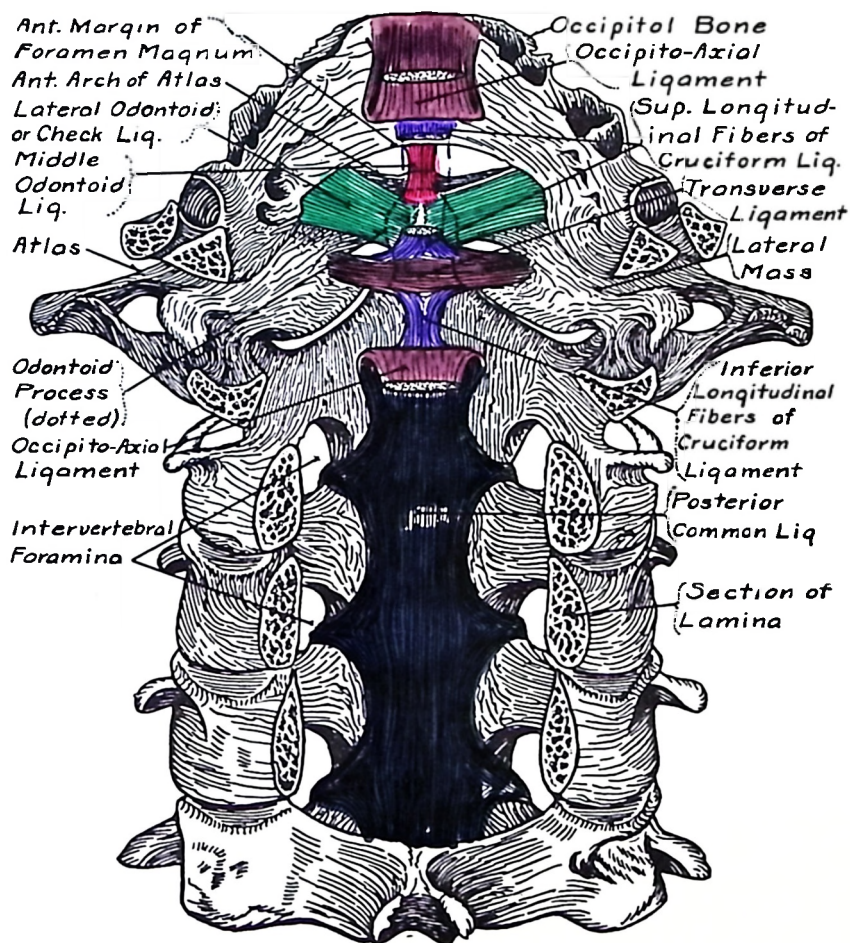 Ant. Margin of
Foramen Magnum
Ant. Arch of Atlas
Lateral Odontoid
or Check Lig.
Middle
Odontoid
Lig.
Atlas
Odontoid
Process
(dotted)
Occipito-Axial
Ligament
Intervertebral
Foramina
Occipitol Bone
Occipito-Axial
Ligament
Sup. Longitud-
inal Fibers of
Cruciform Lig.
Transverse
Ligament
Lateral
Mass
Inferior
Longitudinal
Fibers of
Cruciform
Ligament
Posterior
Common Lig
Section of
Lamina